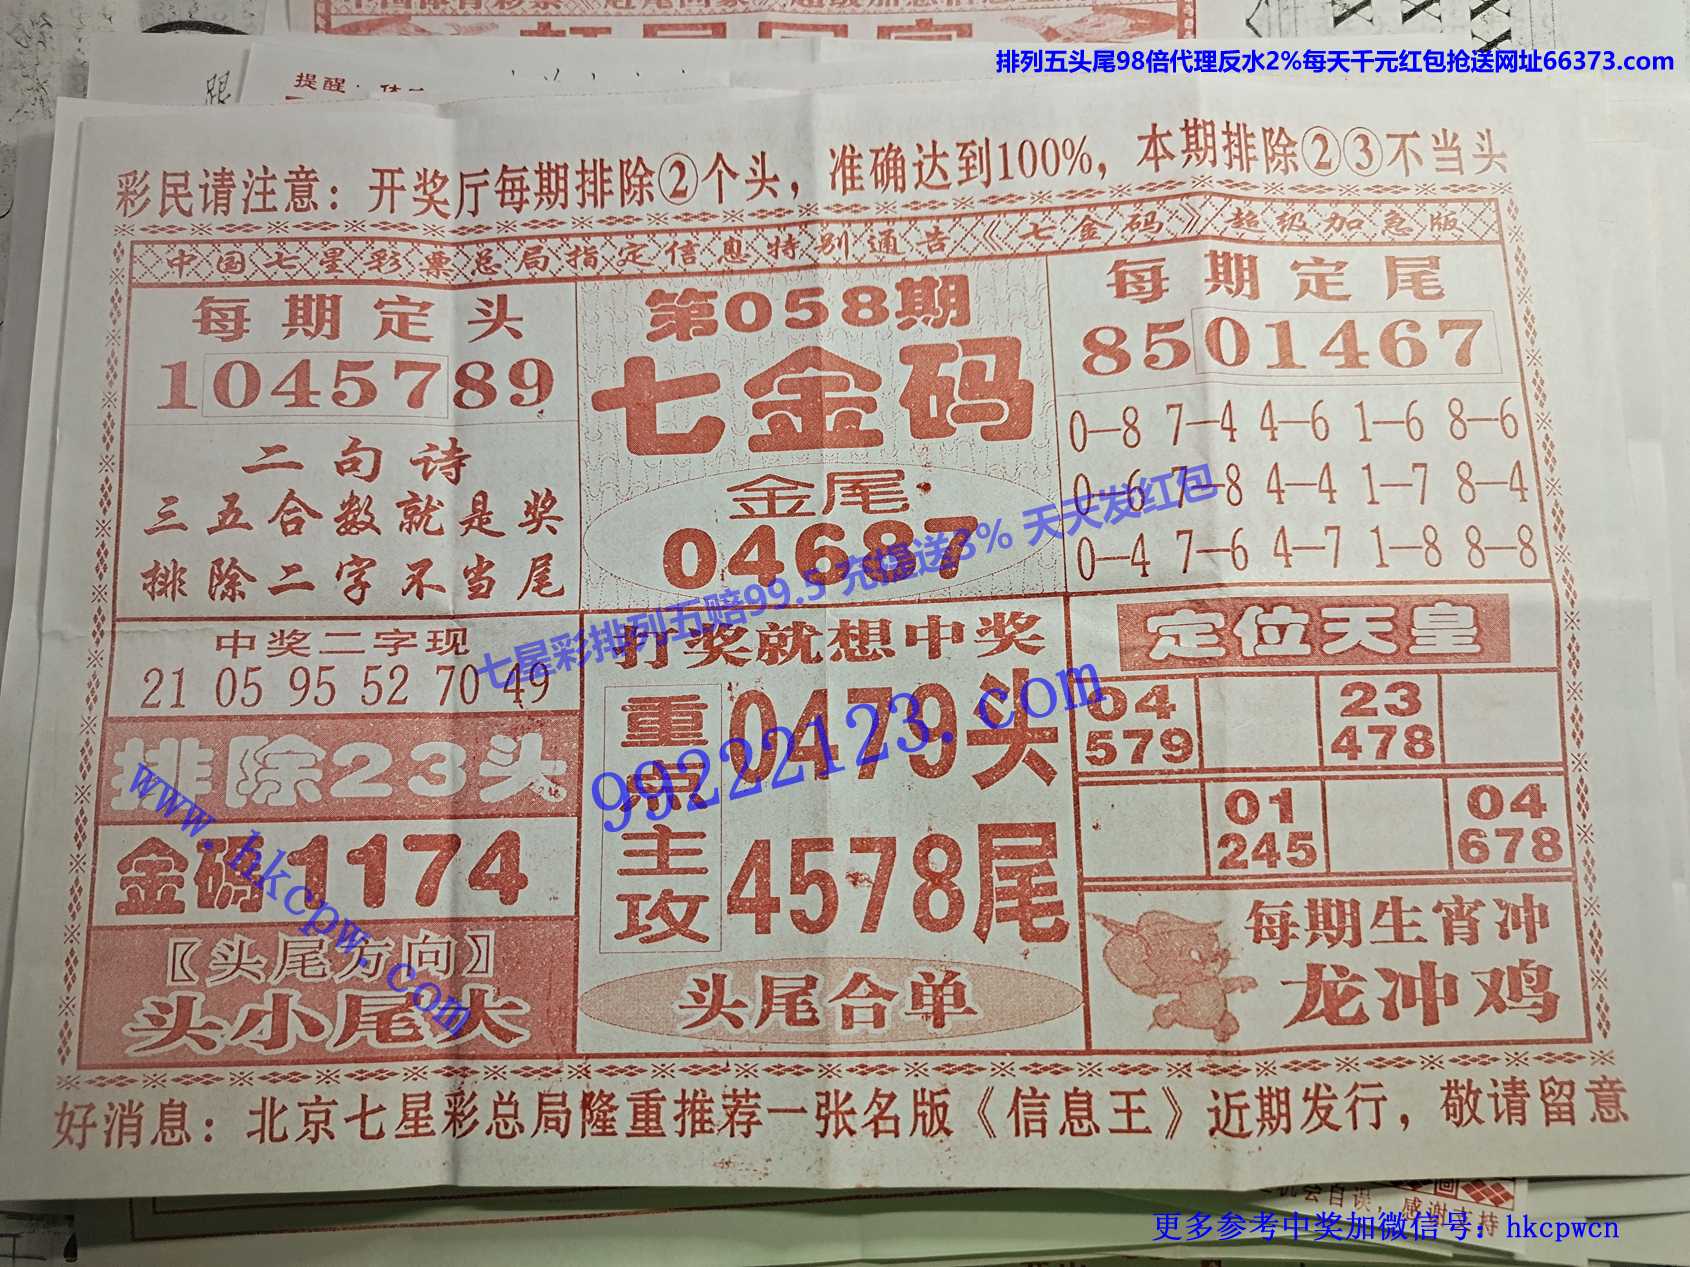 排列五头尾98倍代理反水2%每天千元红包抢送网址66373.com
提醒：
彩民请注意：开奖厅每期排除②个头，准确达到100%，本期排除②③不当头
中国七星彩票总局指定信息特别通告《七金码》超级加急版
每期定头
1045789
二句诗
三五合数就是奖
排除二字不当尾
第058期
七金码
金尾
04687
每期定尾
8501467
0—8 7—4 4—6 1—6 8—6
0—6 7—8 4—4 1—7 8—4
0—4 7—6 4—7 1—8 8—8
七星彩排列五赔99.5 充提送3% 天天发红包
中奖二字现
21 05 95 52 70 49
排除23头
金码1174
〖头尾方向〗
头小尾大
www.hkcpw.com
打奖就想中奖
重点主攻
0479头
4578尾
头尾合单
99222123.com
定位天皇
04
579
23
478
01
245
04
678
每期生宵冲
龙冲鸡
好消息：北京七星彩总局隆重推荐一张名版《信息王》近期发行，敬请留意
会自误，感谢支持
更多参考中奖加微信号：hkcpwcn